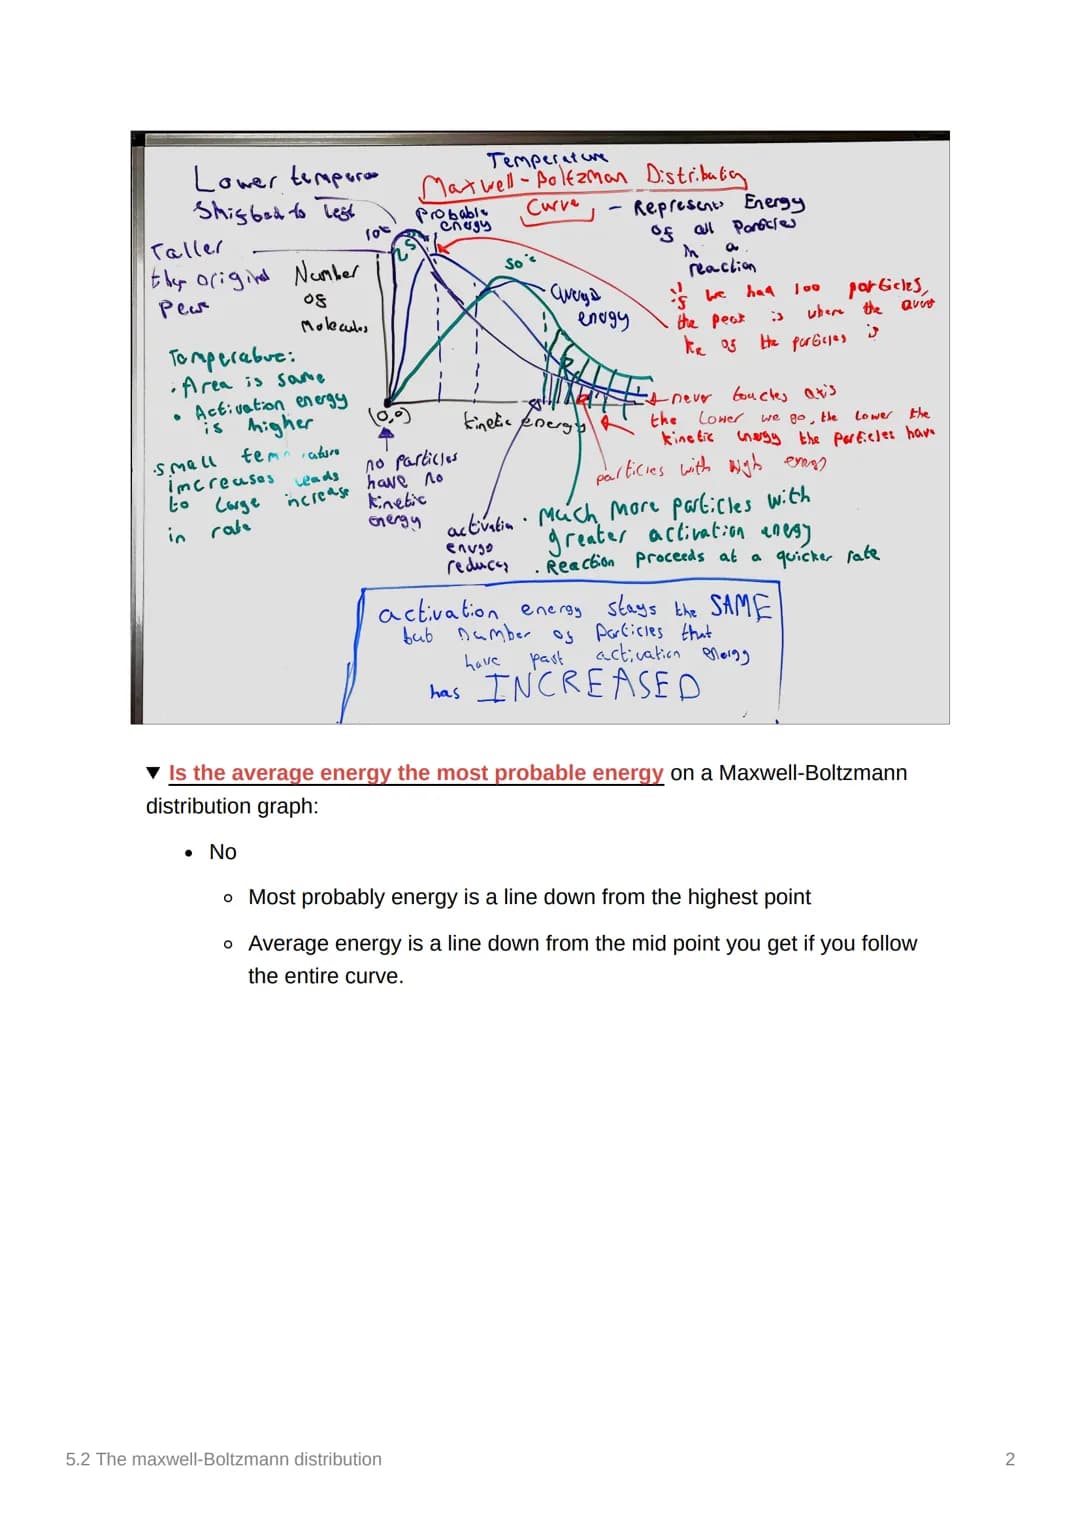 Temperature
Maxwell-Boltzman Distribution
Curve
- Represents Energy
of all Particles
in a
reaction
Lower
Shifted to left
Taller
Number
of
Molecules
10°c
Probable
energy
25
50°c
energy
if we had 100 particles,
the peak is where the
ke of the particles is
Temperature:
• Area is same
• Activation energy
is higher
• small
increases leads
to large increase
in rate
(0,0)
kinetic energy
no particles
have no
kinetic
energy
never touches axis
the Lower we go, the Lower the
kinetic energy the particles have
particles with high energy
activation
reduces
• Much More particles with
greater activation energy
• Reaction proceeds at a quicker rate
activation energy stays the SAME
but number of particles that
have past activation energy
has INCREASED
▼ Is the average energy the most probable energy on a Maxwell-Boltzmann
distribution graph:
• No
○ Most probably energy is a line down from the highest point
○ Average energy is a line down from the mid point you get if you follow
the entire curve.
5.2 The maxwell-Boltzmann distribution
2